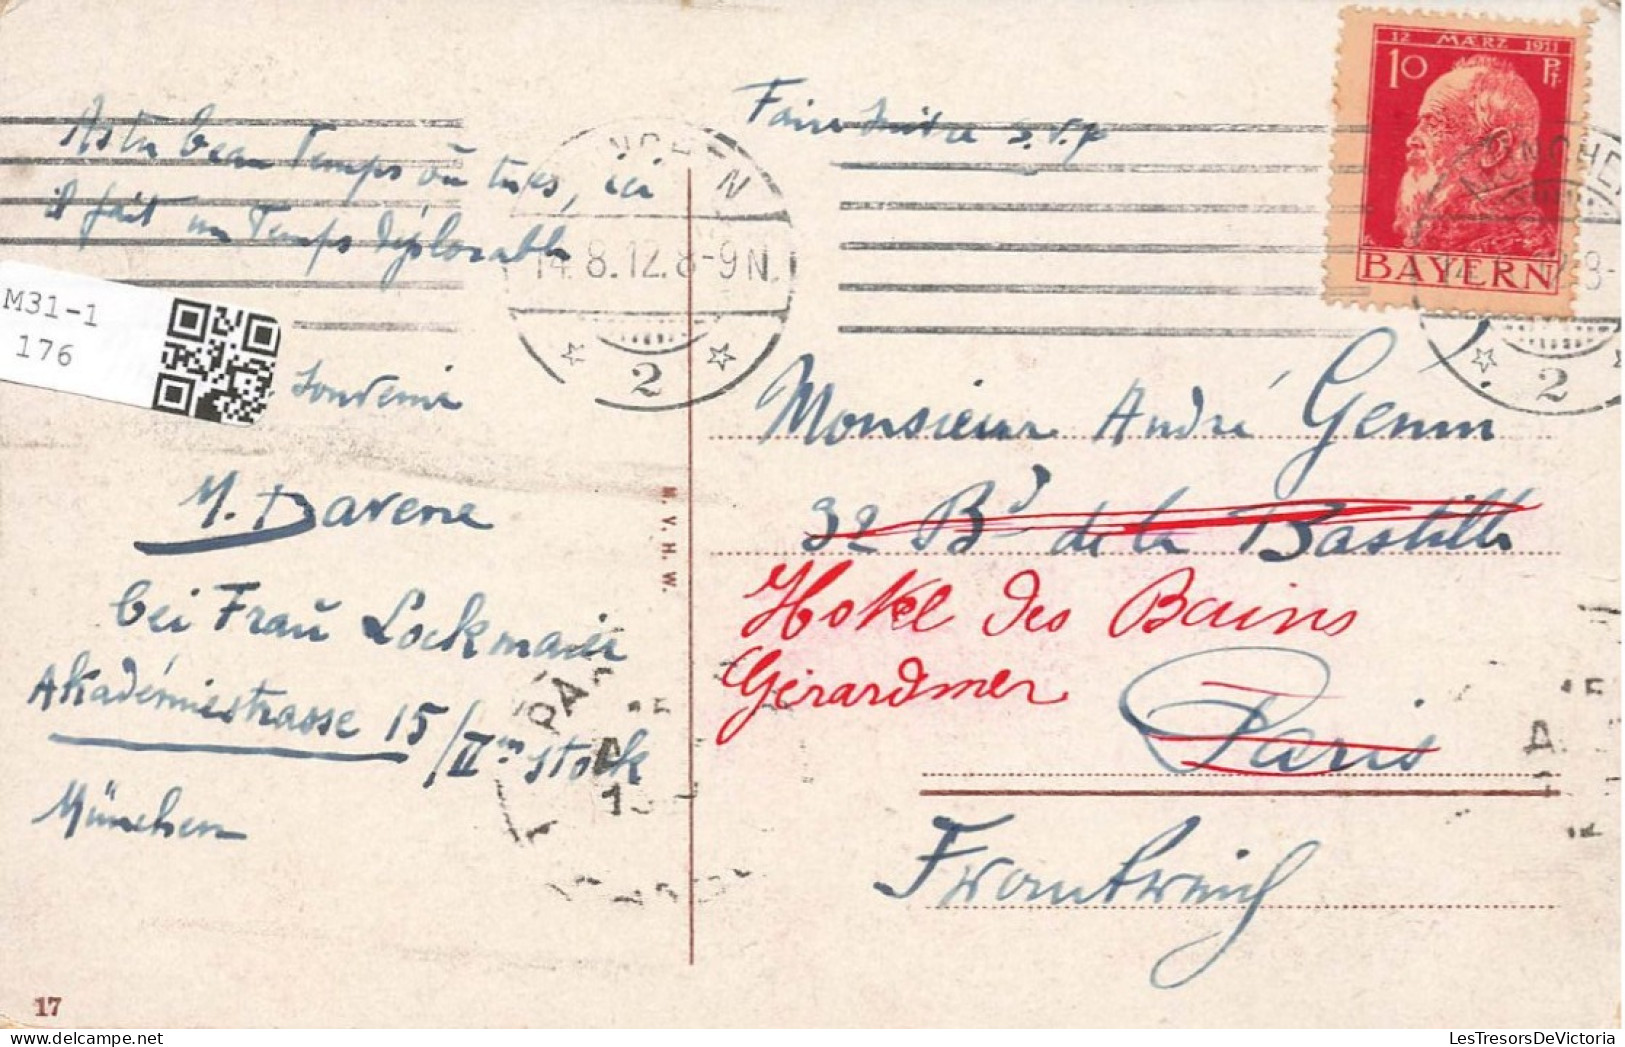 As tu beau Temps où tu es, ici
il fait un Temps déplorable
Souvenir
M. Davene
bei Frau Lockmaier
Akadémiestrasse 15/II em Stock
München
17
M31-1
176
M. V. H. W.
Faire suivre s.v.p
12 MÆRZ 1911
10 Pf.
BAYERN
MÜNCHEN
14.8.12.8-9N.
2
MÜNCHEN
2
Monsieur André Gemm
32 Bd de la Bastille
Hotel des Bains
Gérardmer
Paris
Frankreich
PARIS
LesTresorsDeVictoria